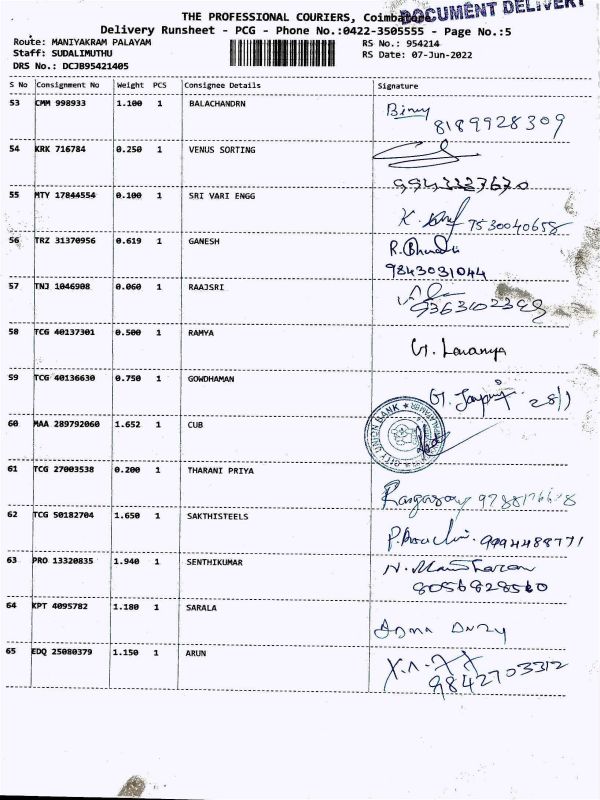 THE PROFESSIONAL COURIERS, Coimbatore
DOCUMENT DELIVERY
Delivery Runsheet - PCG - Phone No.:0422-3505555 - Page No.:5
Route: MANIYAKRAM PALAYAM
RS No.: 954214
Staff: SUDALIMUTHU
RS Date: 07-Jun-2022
DRS No.: DCJB95421405
S No Consignment No Weight PCS Consignee Details Signature
53 CMM 998933 1.100 1 BALACHANDRN
8189928309
54 KRK 716784 0.250 1 VENUS SORTING
9943327670
55 MTY 17844554 0.100 1 SRI VARI ENGG
K. 7530040658
56 TRZ 31370956 0.619 1 GANESH
R.
9843031044
57 TNJ 1046908 0.060 1 RAAJSRI
58 TCG 40137301 0.500 1 RAMYA
G. Lavanya
59 TCG 40136630 0.750 1 GOWDHAMAN
G. 28/1
60 MAA 289792060 1.652 1 CUB
CITY UNION BANK
61 TCG 27003538 0.200 1 THARANI PRIYA
Rangasamy
62 TCG 50182704 1.650 1 SAKTHISTEELS
9994488771
63 PRO 13320835 1.940 1 SENTHIKUMAR
N. Manoharan
8056828560
64 KPT 4095782 1.180 1 SARALA
65 EDQ 25080379 1.150 1 ARUN
9842703312